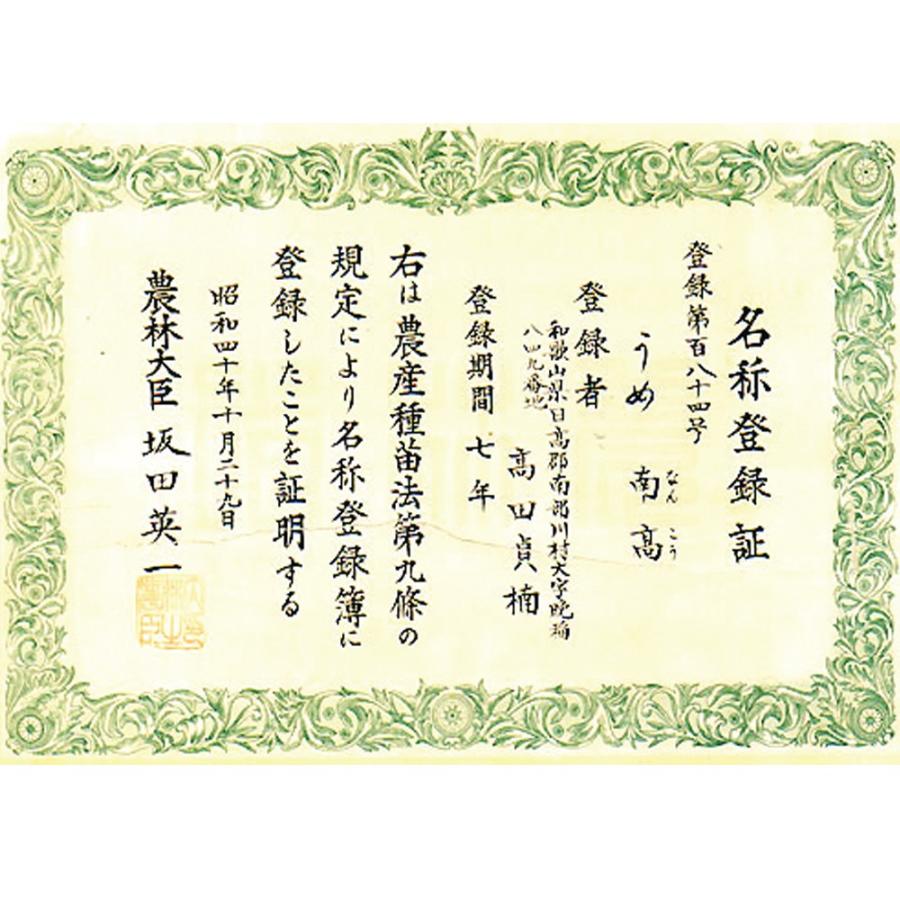 名称登録証
登録第百八十四号
うめ 南高
なんこう
登録者
和歌山県日高郡南部川村大字晩稲
八四九番地
高田貞楠
登録期間 七年
右は農産種苗法第九條の
規定により名称登録簿に
登録したことを証明する
昭和四十年十月二十九日
農林大臣 坂田英一